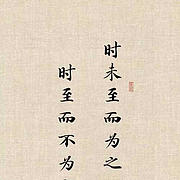 时未至而为之
时至而不为